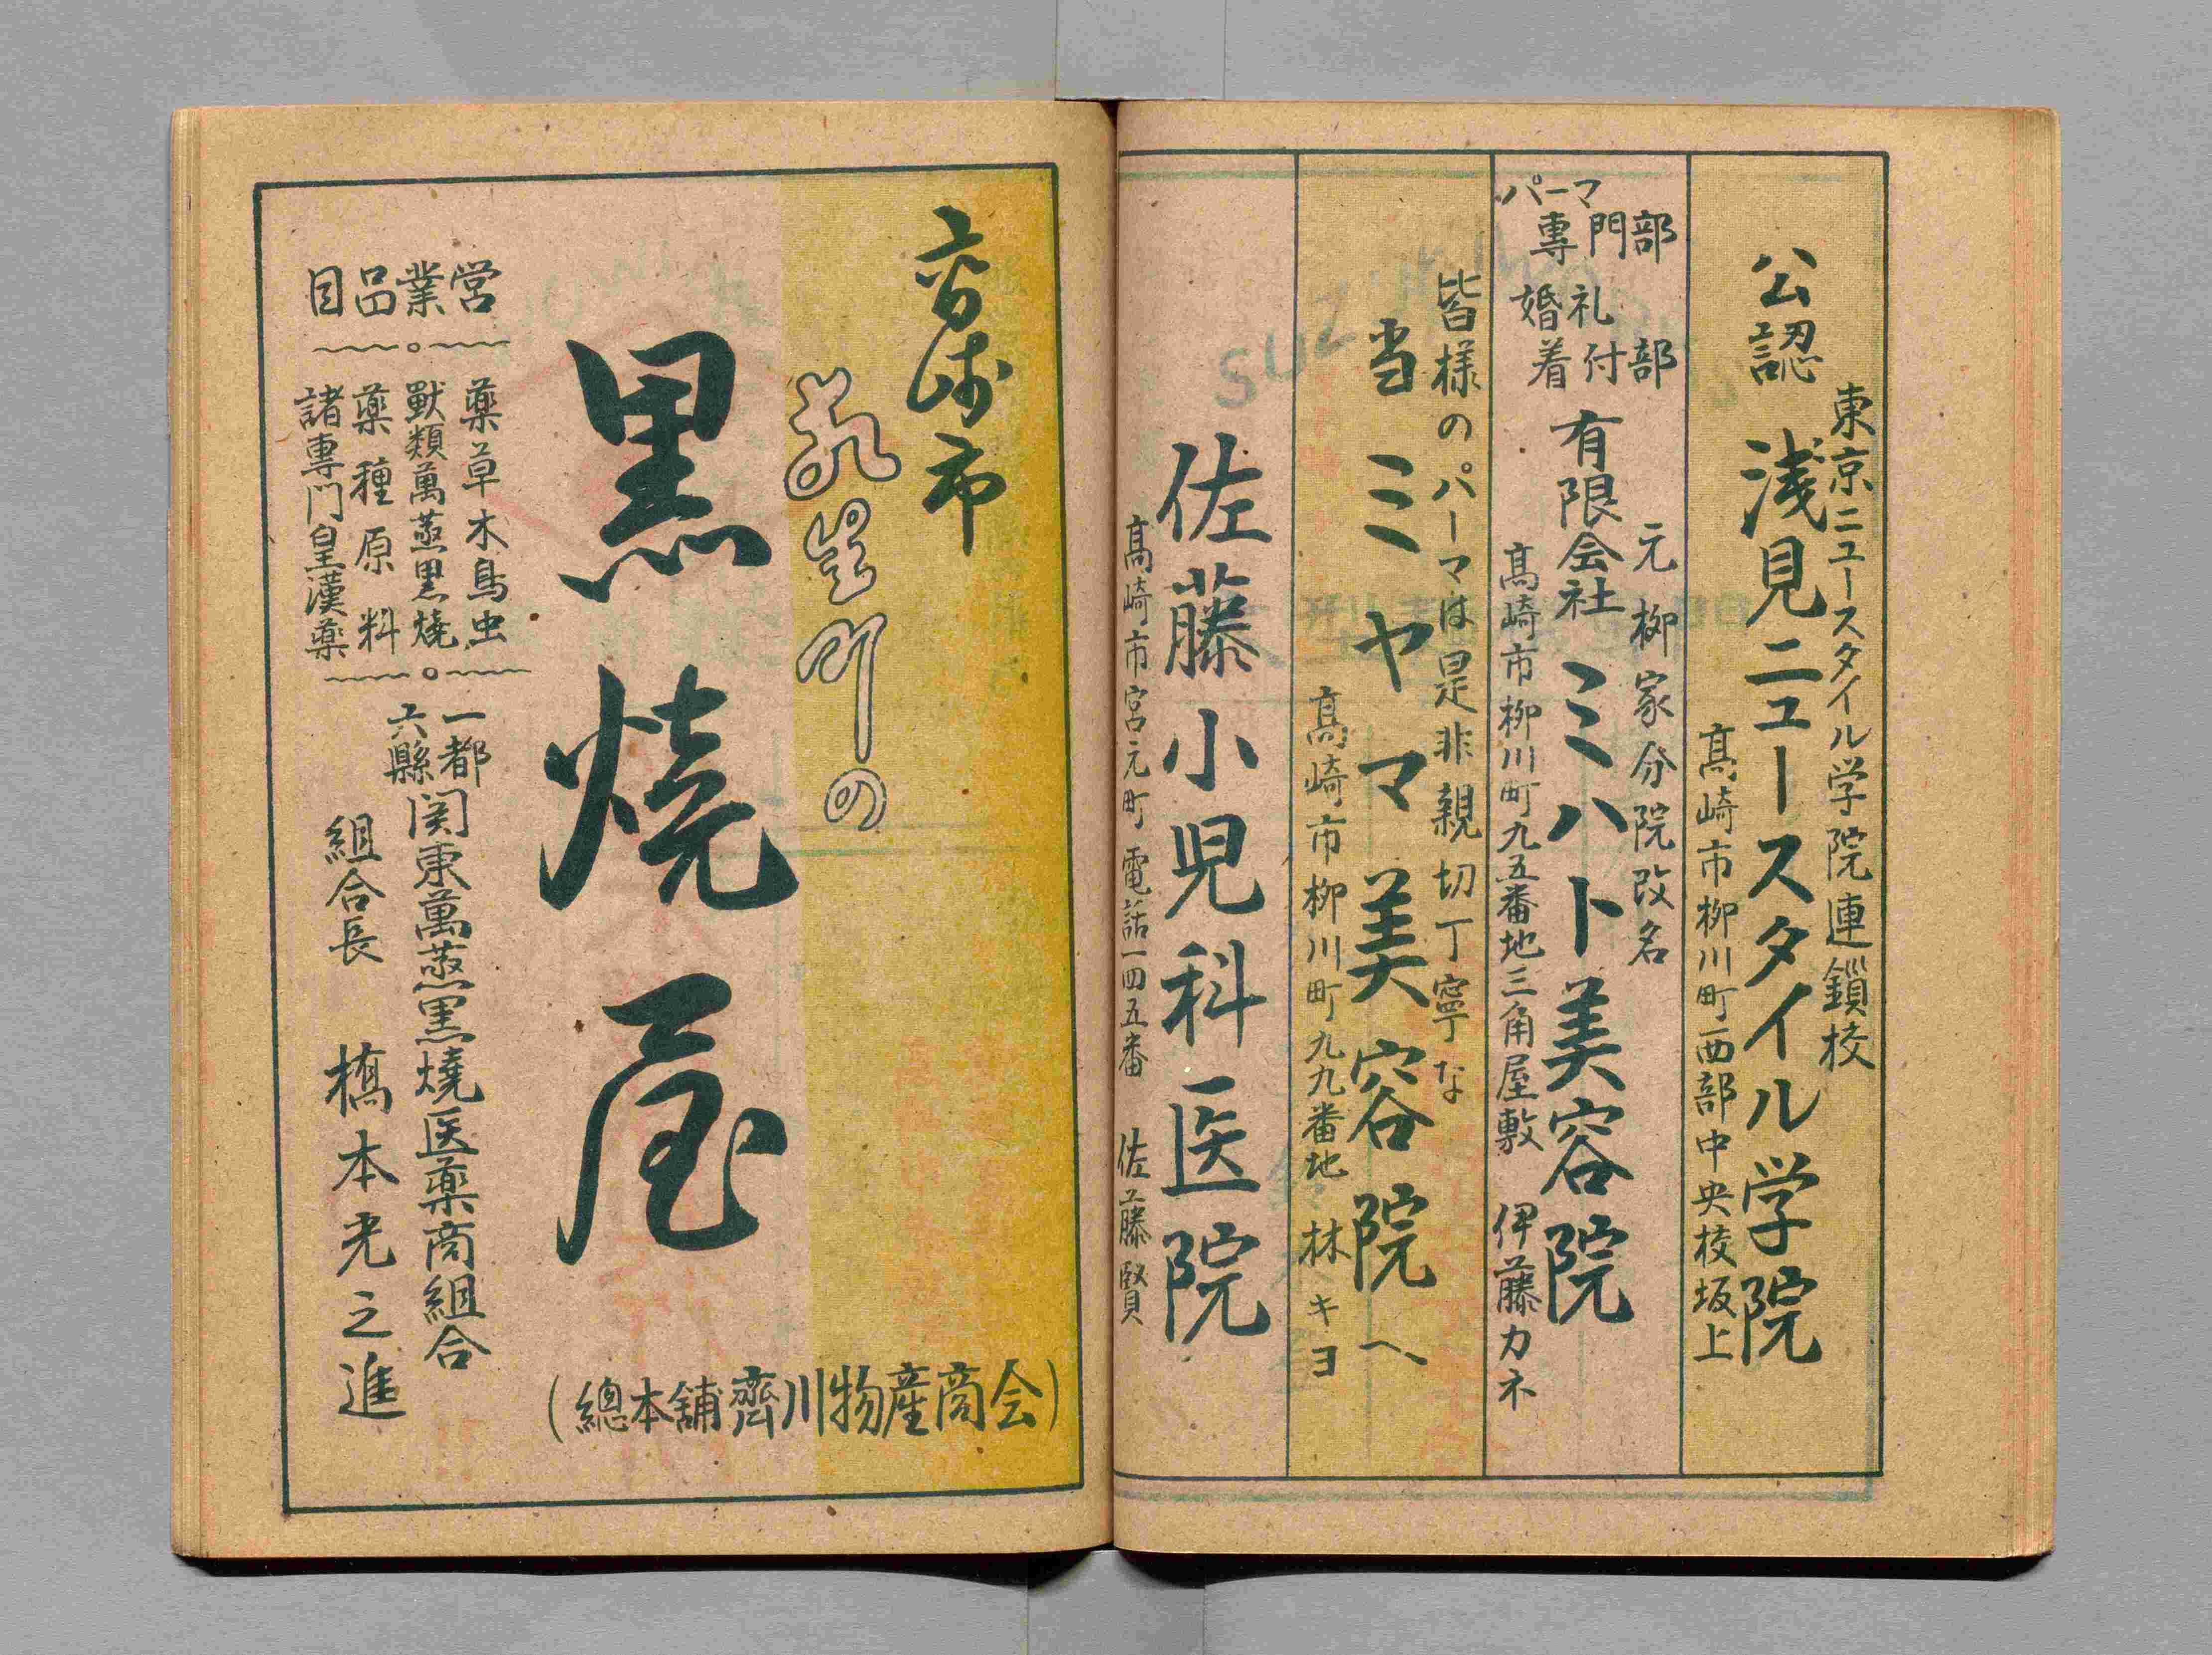 東京ニュースタイル学院連鎖校
公認 浅見ニュースタイル学院
髙崎市柳川町西部中央校坂上
パーマ専門部
婚礼着付部
元柳家分院改名
有限会社 ミハト美容院
髙崎市柳川町九五番地三角屋敷 伊藤カネ
皆様のパーマは是非親切丁寧な
当ミヤマ美容院へ
髙崎市柳川町九九番地 林キヨ
佐藤小児科医院
髙崎市宮元町 電話一四五番 佐藤賢
髙崎市
黒焼屋
(總本舗齊川物産商会)
営業品目
薬草木鳥虫
獸類萬蒸黒燒
薬種原料
諸専門皇漢薬
一都六縣
関東萬蒸黒燒医薬商組合
組合長 橋本光之進